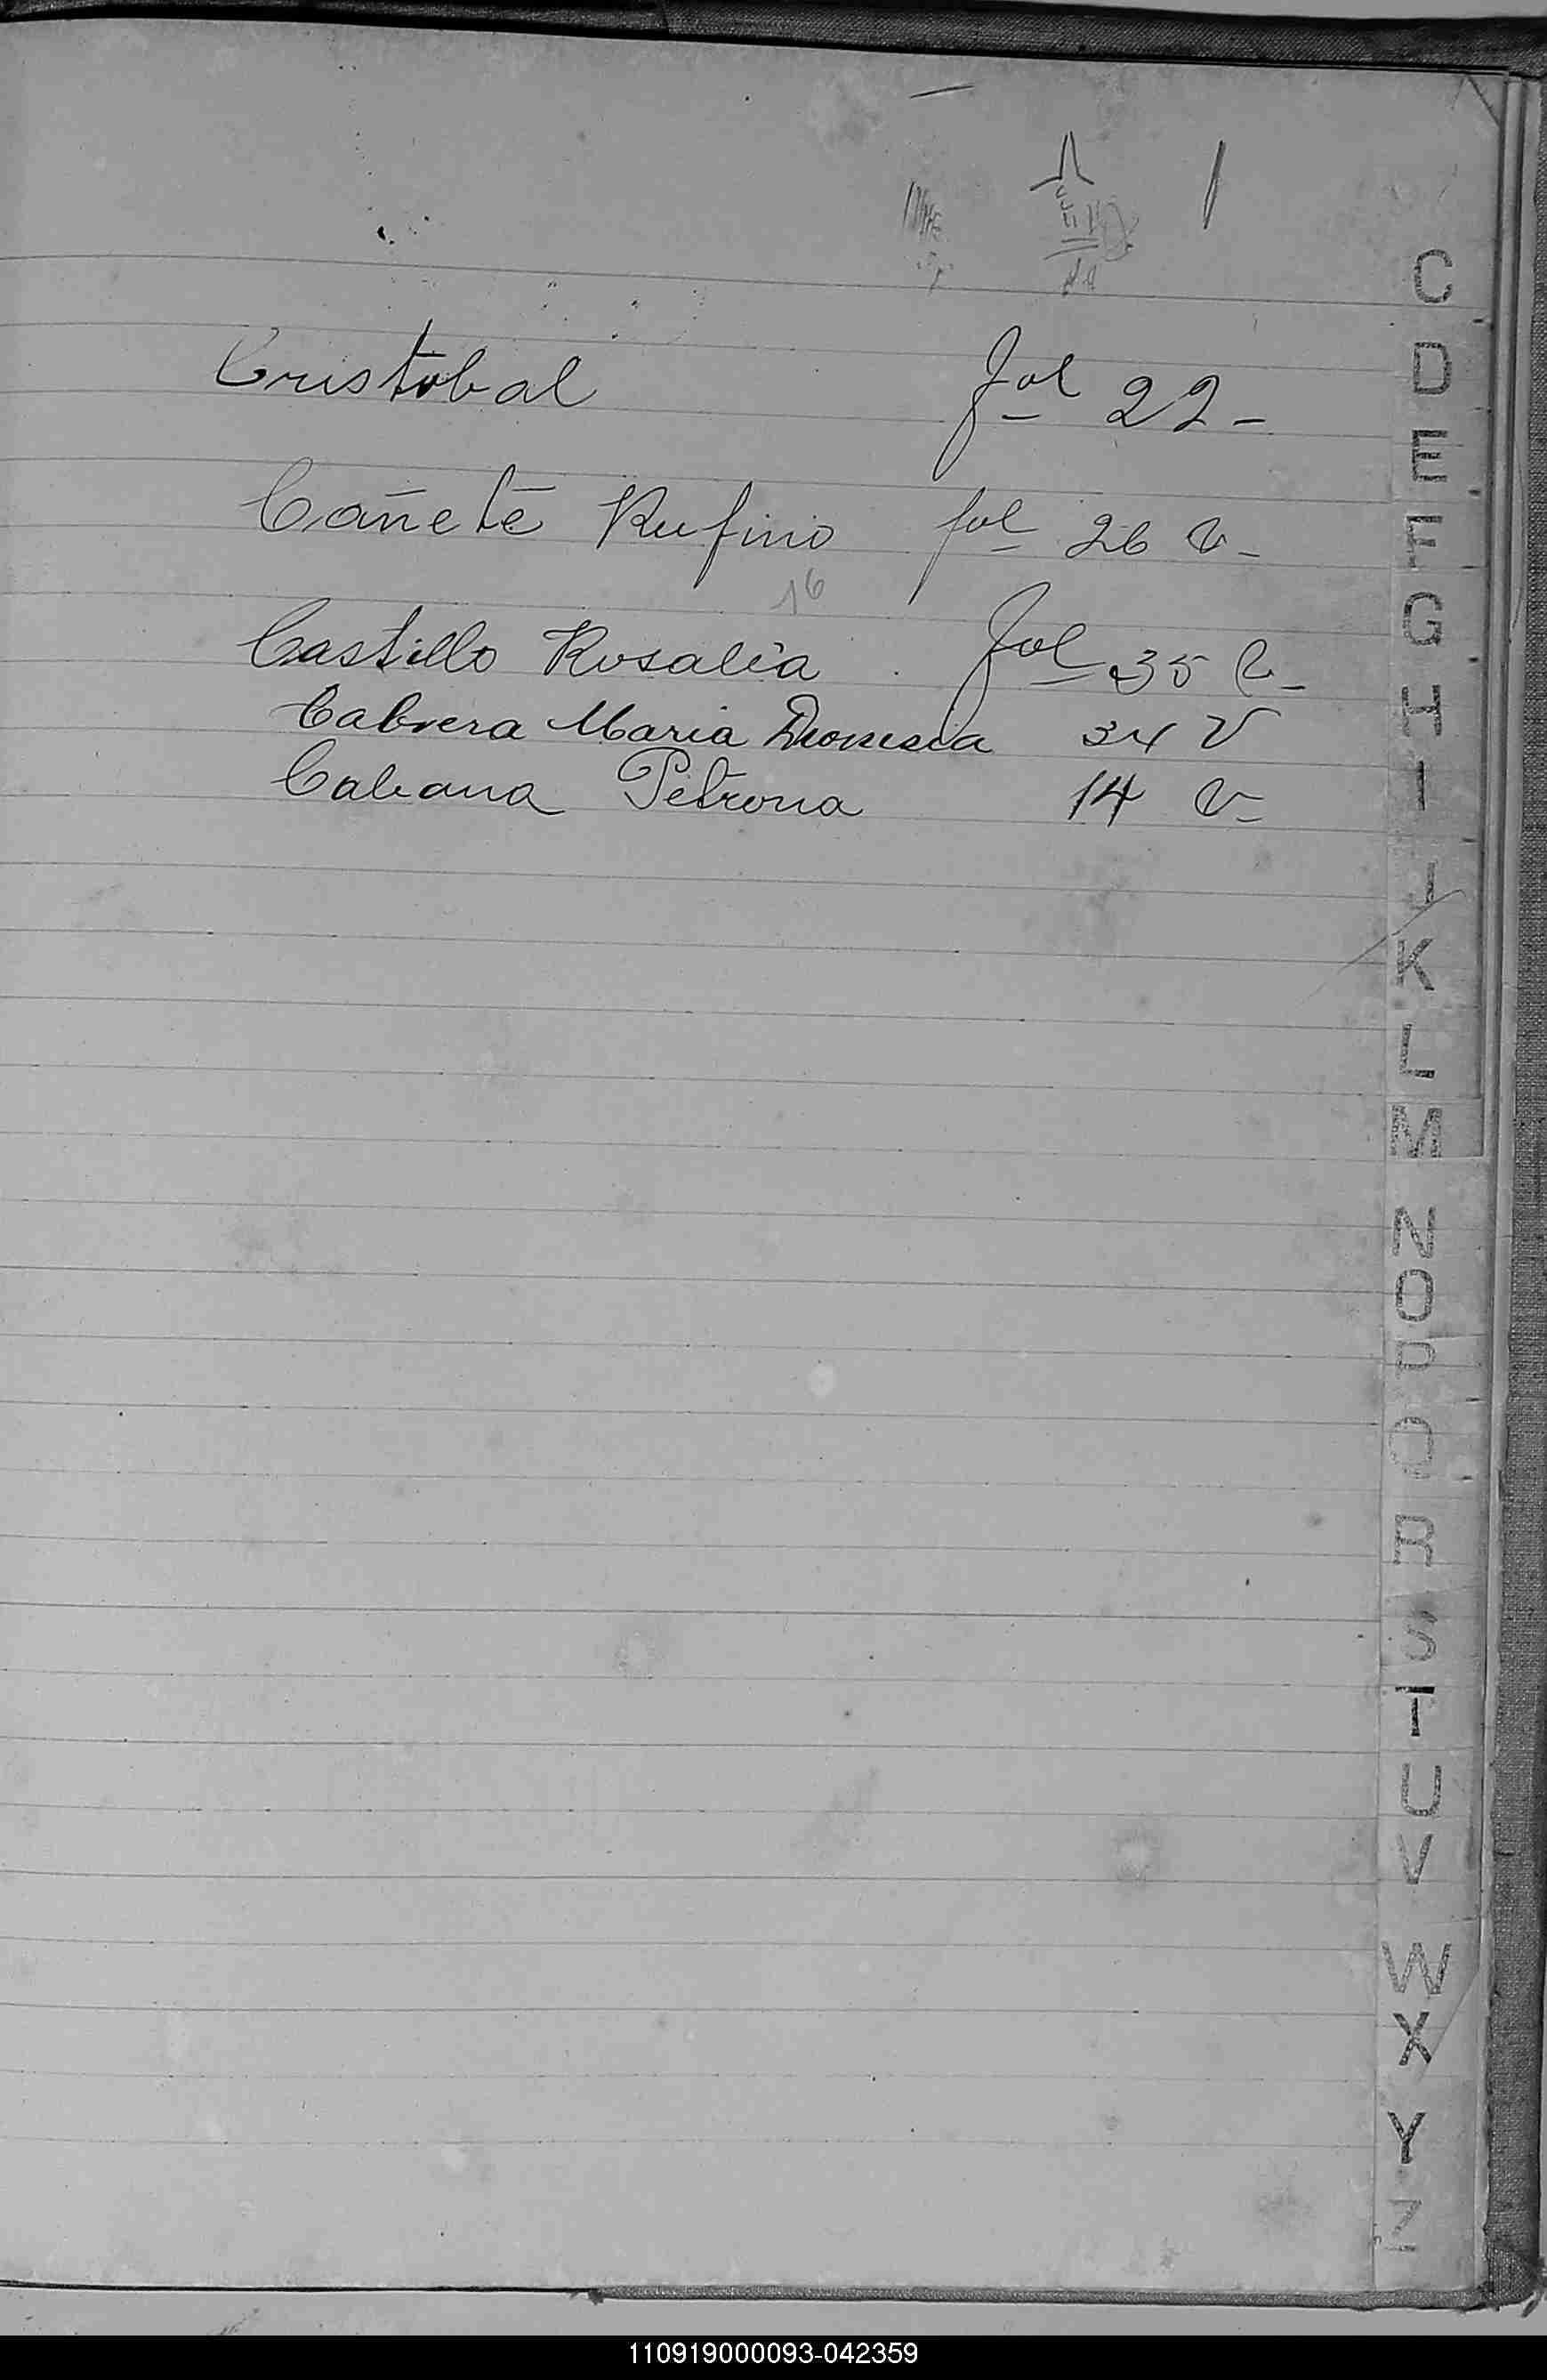 Cristobal fol 22 -
Cañete Rufino fol 26 v -
16
Castillo Rosalia fol 35 v -
Cabrera Maria Dionisia 34 V
Cabana Petrona 14 v -
C
D
E
F
G
H
I
J
K
L
M
N
O
P
Q
R
S
T
U
V
W
X
Y
Z
110919000093-042359